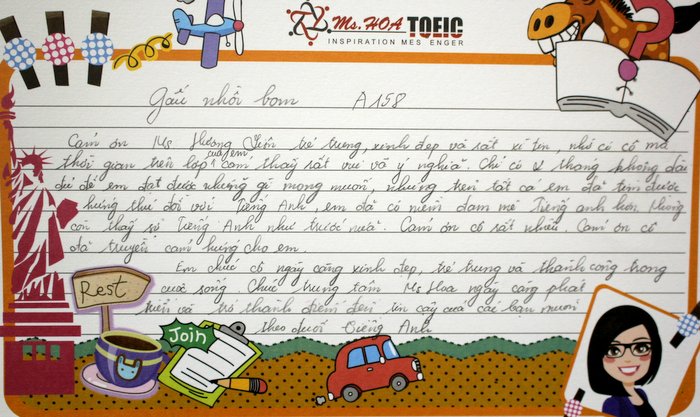 Ms.HOA TOEIC
INSPIRATION MES ENGER
Gấu nhồi bom A158
Cảm ơn Ms Hương Liên trẻ trung, xinh đẹp và rất xì tin, nhờ có cô mà
thời gian trên lớp của em cảm thấy rất vui và ý nghĩa. Chỉ có 2 tháng không dài
đủ để em đạt được những gì mong muốn, nhưng trên tất cả em đã tìm được
hứng thú đối với Tiếng Anh, em đã có niềm đam mê Tiếng anh hơn, không
còn thấy sợ Tiếng Anh như trước nữa. Cảm ơn cô rất nhiều. Cảm ơn cô
đã truyền cảm hứng cho em.
Em chúc cô ngày càng xinh đẹp, trẻ trung và thành công trong
cuộc sống. Chúc trung tâm Ms Hoa ngày càng phát
triển và trở thành điểm đến tin cậy của các bạn muốn
theo đuổi Tiếng Anh
Rest
Join